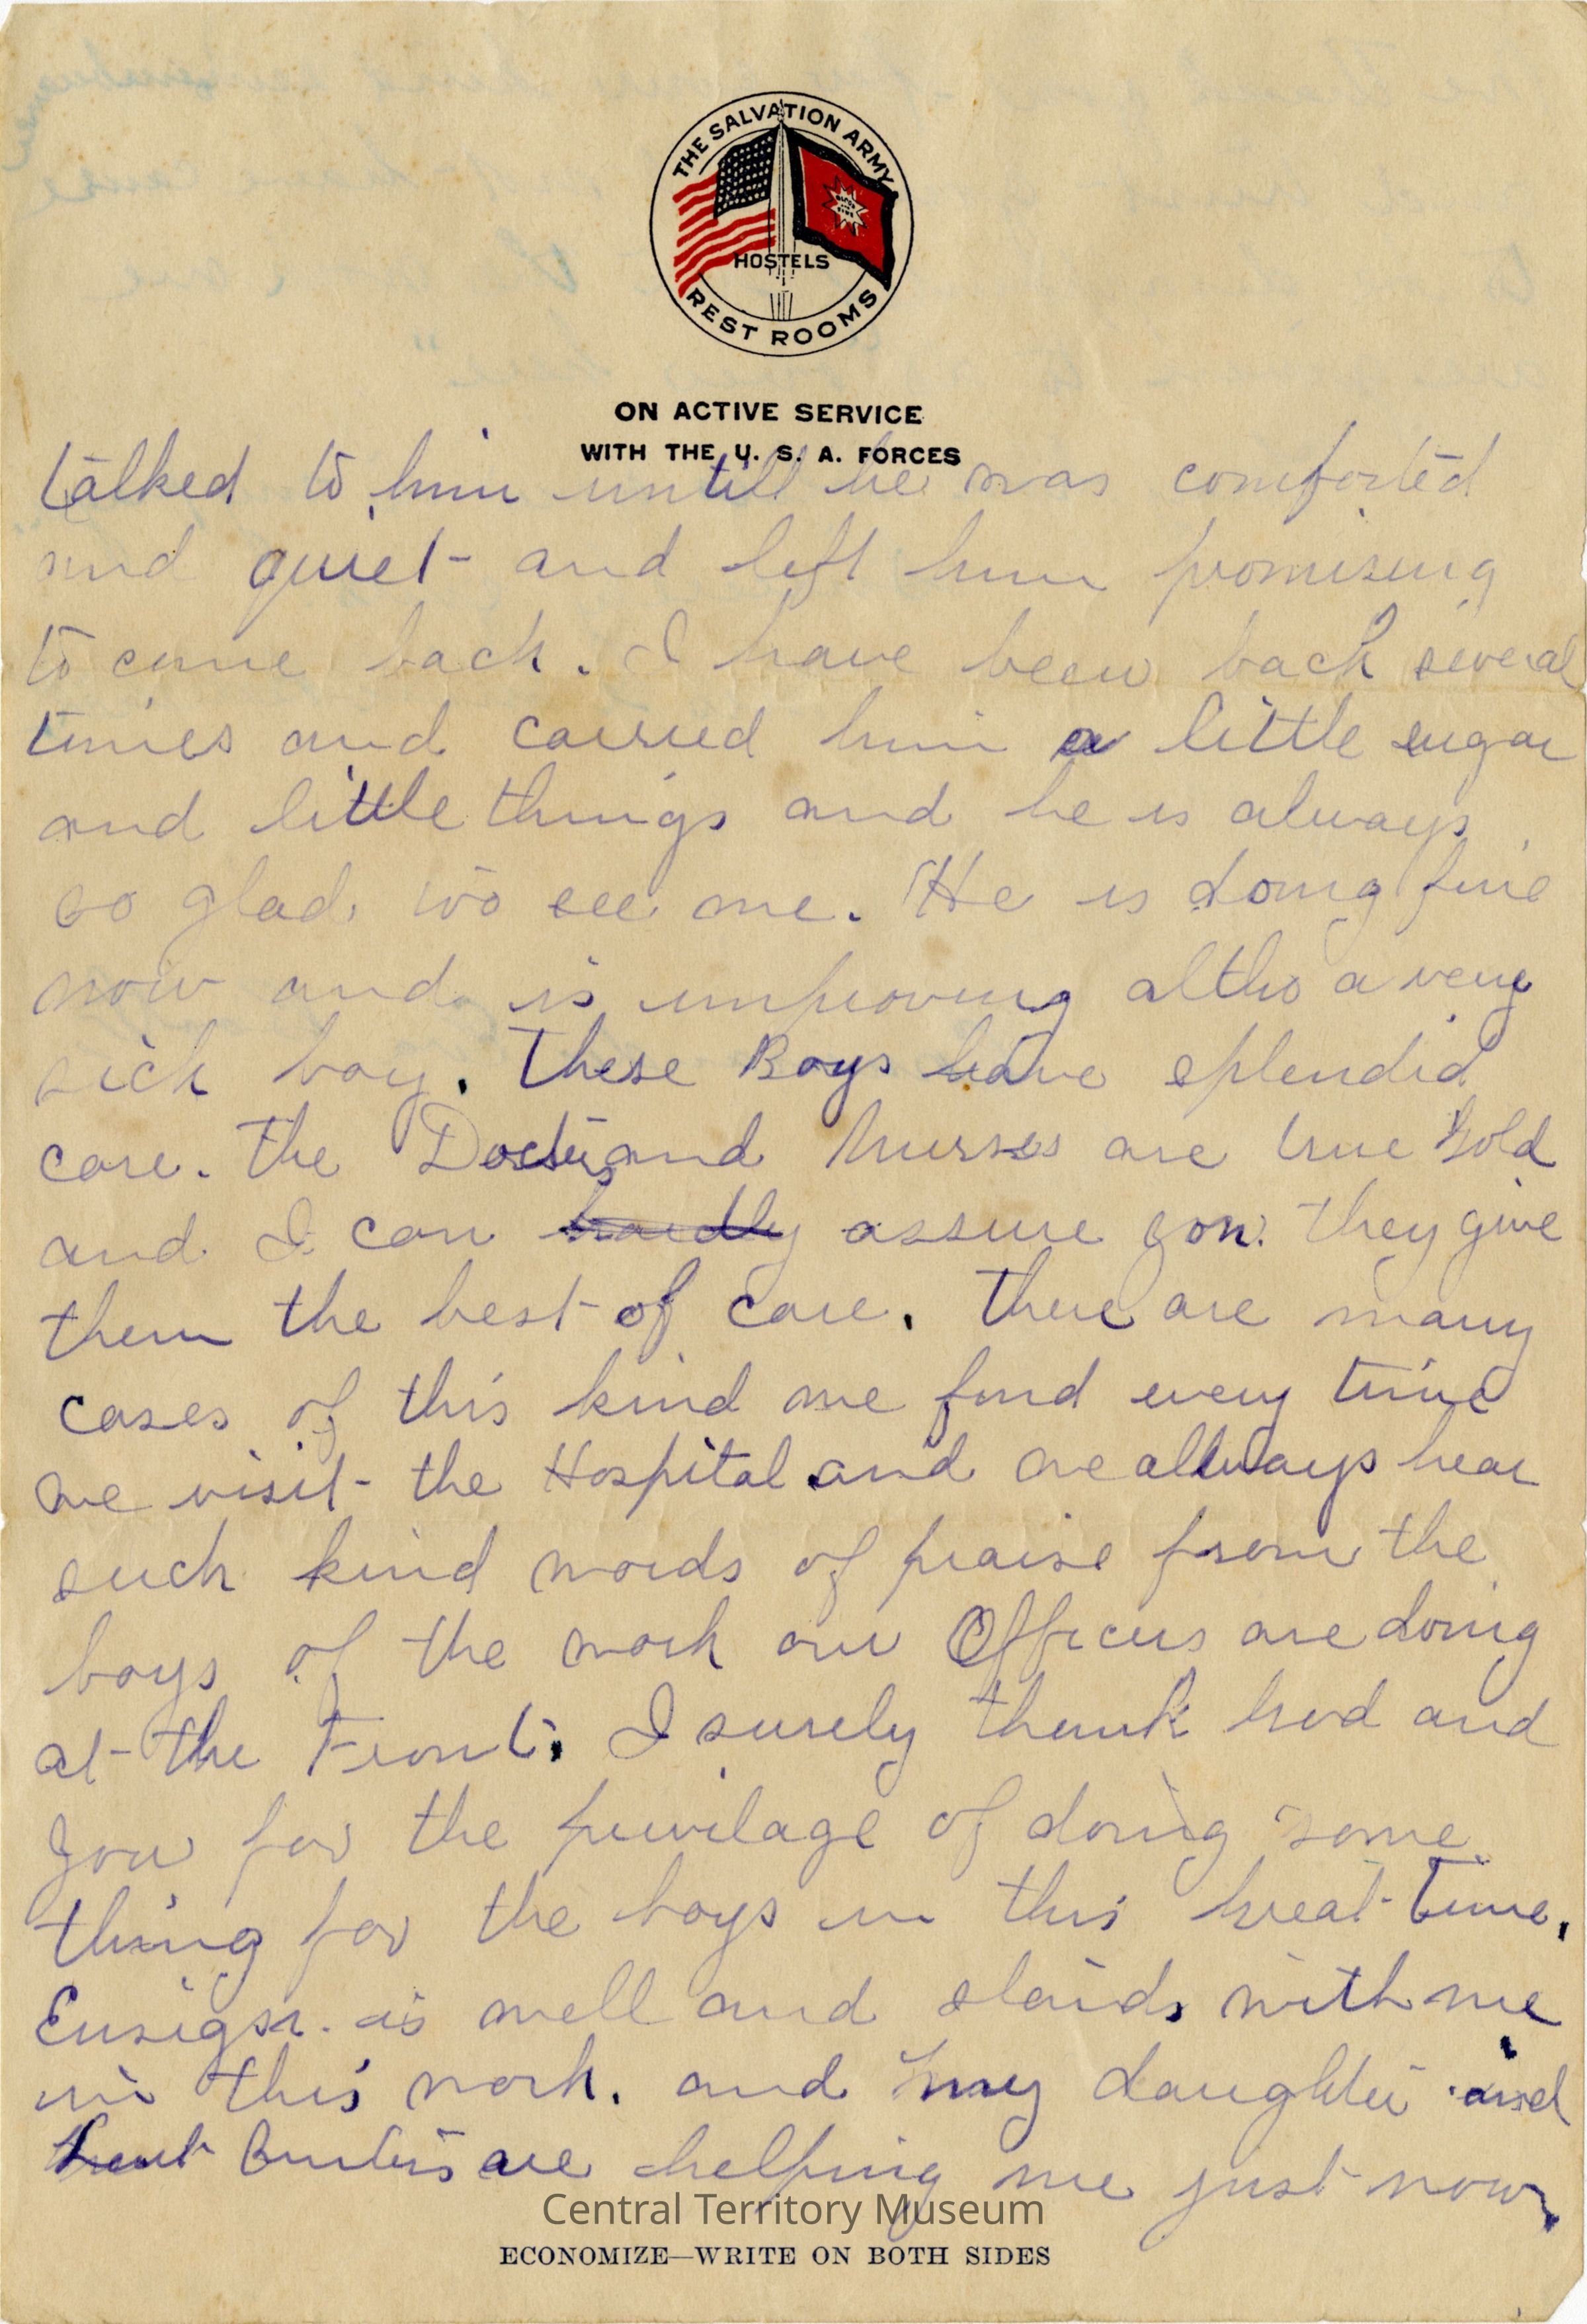 THE SALVATION ARMY
HOSTELS
REST ROOMS
ON ACTIVE SERVICE
WITH THE U. S. A. FORCES
talked to him untill he was comforted
and quiet - and left him promising
to come back. I have been back several
times and carried him a little sugar
and little things and he is always
so glad to see me. He is doing fine
now and is improving altho a very
sick boy. These Boys have splendid
care. The Doctors and Nurses are true Gold
and I can hardly assure you. they give
them the best of care. There are many
cases of this kind we find every time
we visit - the Hospital and we allways hear
such kind words of praise from the
boys of the work our Officers are doing
at - the Front. I surely thank God and
you for the privilage of doing some
thing for the boys in this Great time.
Ensign. is well and stands with me
in this work. and my daughter and
are helping me just now
Central Territory Museum
ECONOMIZE—WRITE ON BOTH SIDES